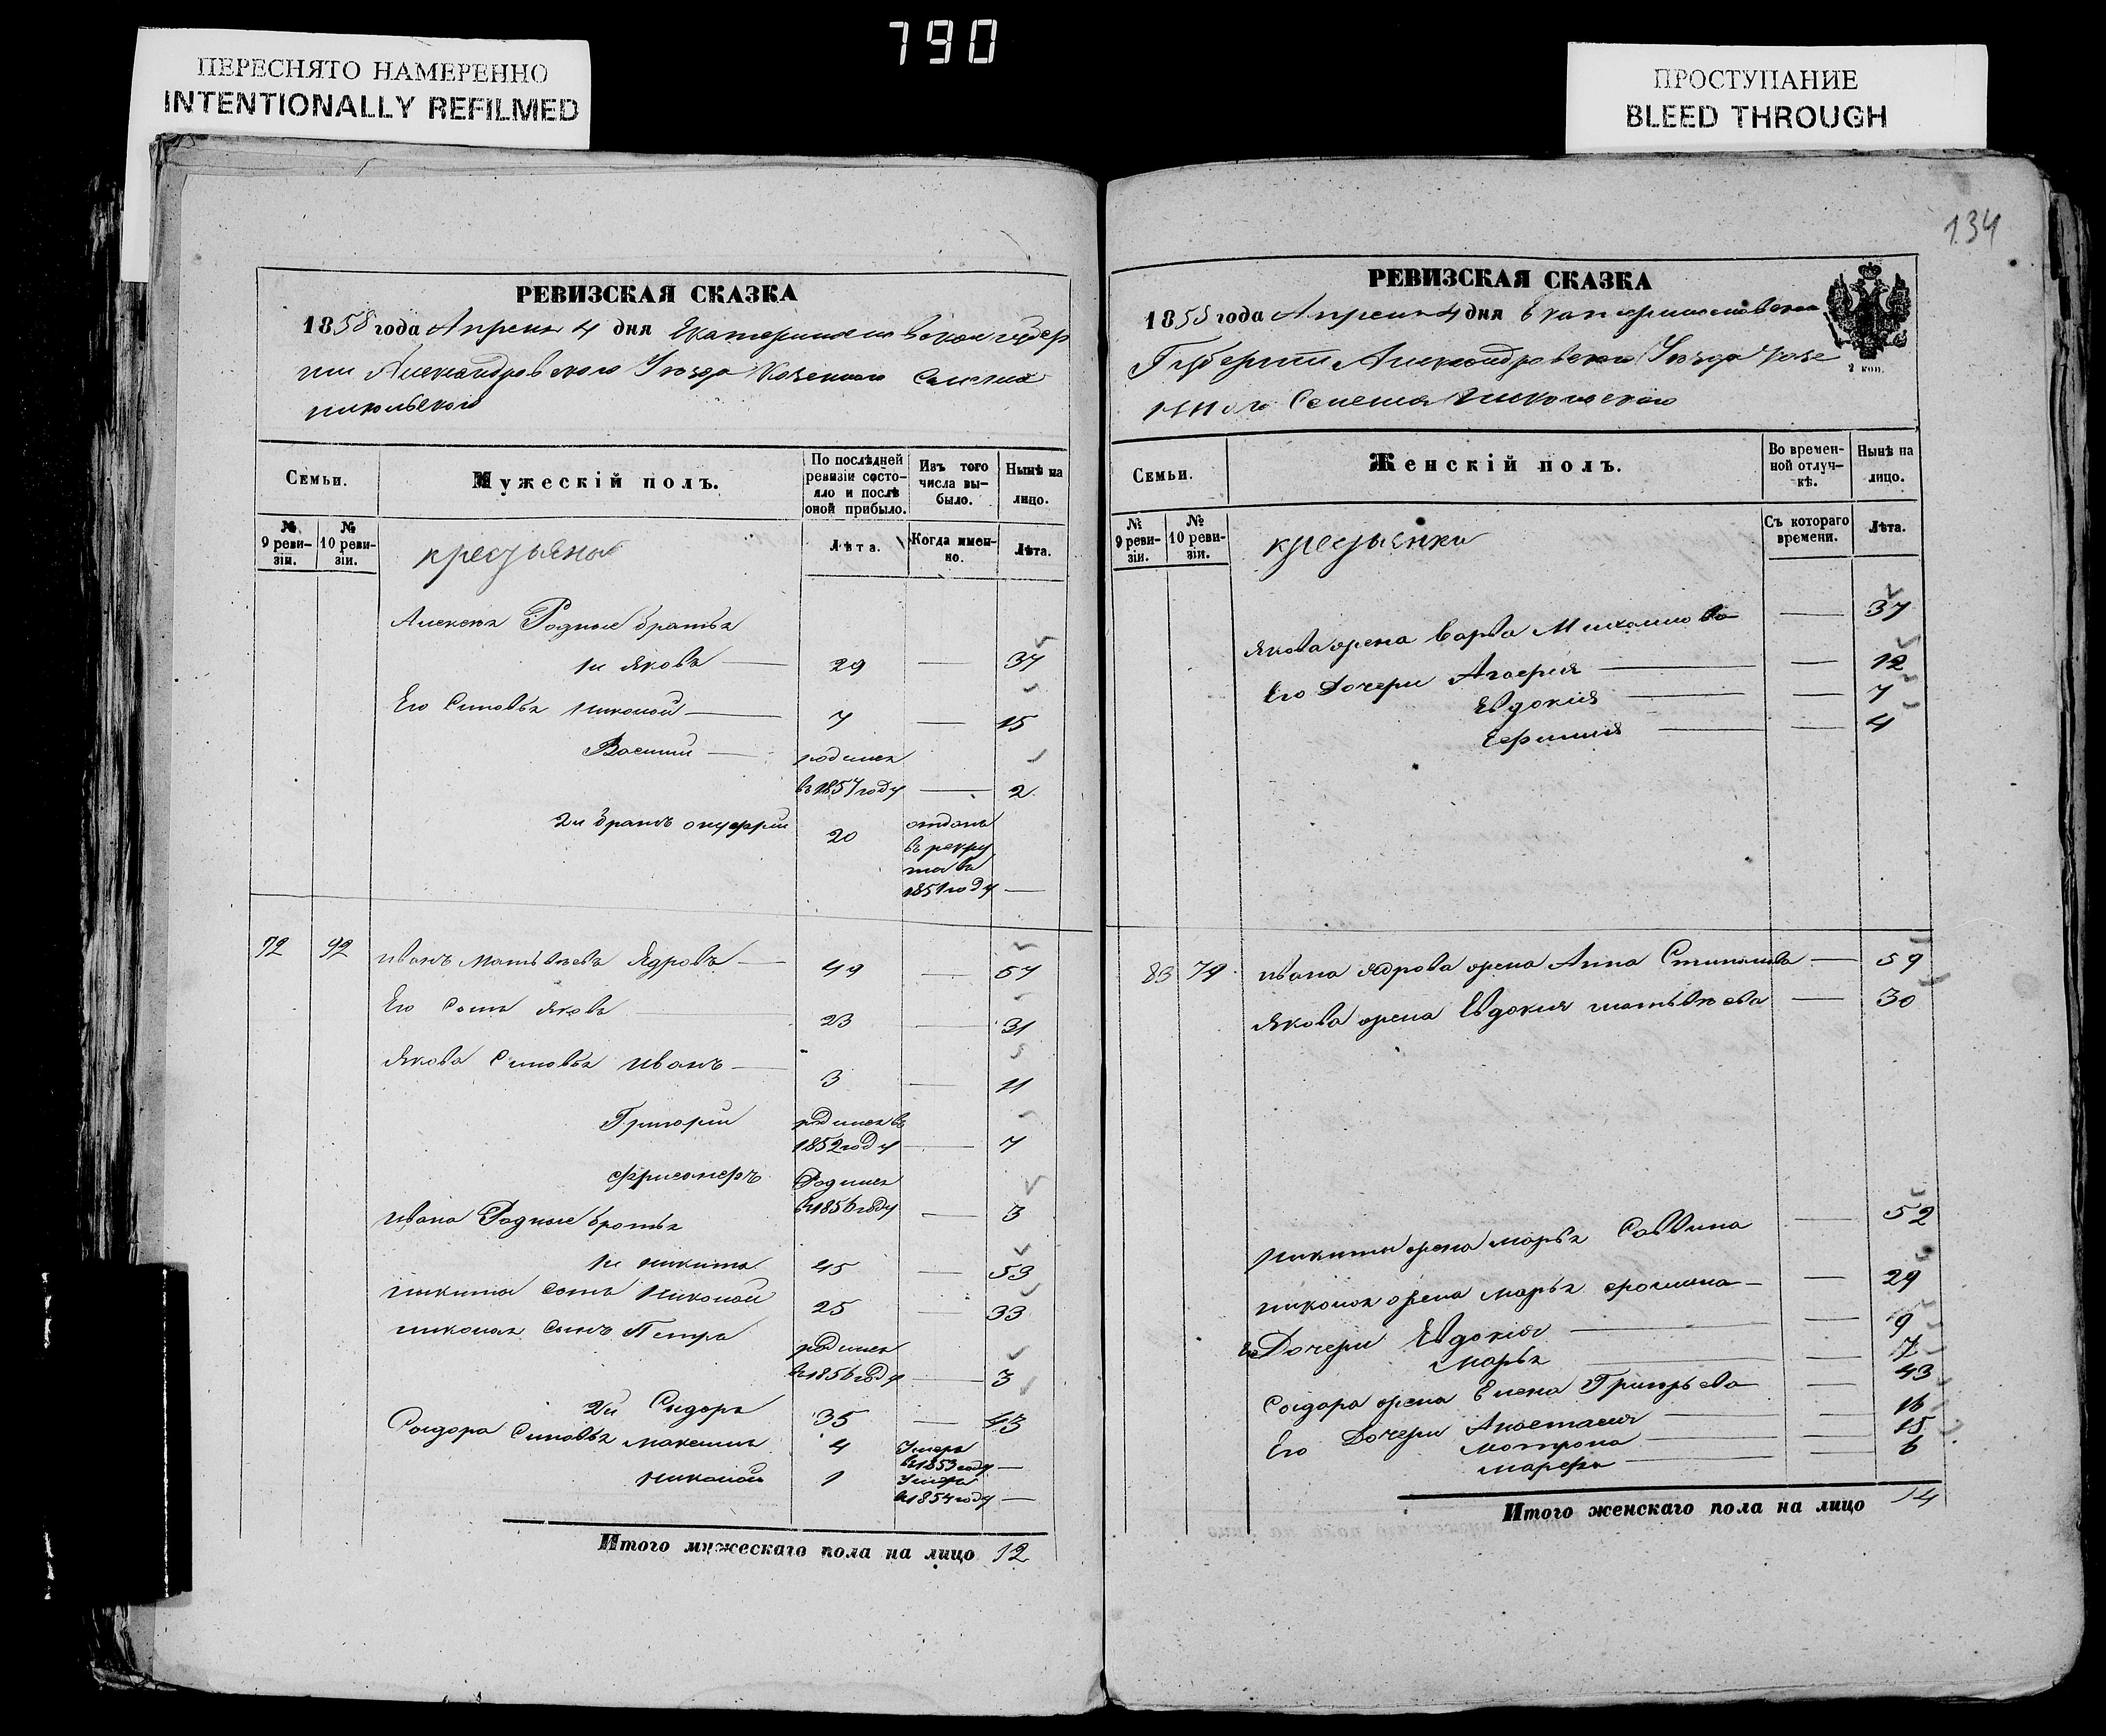 790
ПЕРЕСНЯТО НАМЕРЕННО
INTENTIONALLY REFILMED
ПРОСТУПАНИЕ
BLEED THROUGH
134
РЕВИЗСКАЯ СКАЗКА
1858 года Апреля 4 дня Екатеринославской губер
нии Александровского Уезда Казенного Селения
Никольского
Семьи.
Мужескій полъ.
По послѣдней ревизіи состояло и послѣ оной прибыло.
Изъ того числа выбыло.
Нынѣ на лицо.
№ 9 ревизіи.
№ 10 ревизіи.
крестьяне
Лѣта.
Когда именно.
Лѣта.
Алексея Родные братья
1й Яковъ — 29 — 37
Его Сыновья Николай — 7 — 15
Василий — родился
въ 1857 году — 2
2й братъ Онуфрий 20 отданъ
въ рекру
та въ
1851 году —
72 92 Иванъ Матвѣевъ Ядровъ — 49 — 57
Его Сынъ Яковъ 23 — 31
Якова Сыновья Иванъ — 3 — 11
Григорий родился въ
1852 году — 7
Родился
въ 1856 году — 3
Ивана Родные братья
1й Никита 45 — 53
Никиты сынъ Николай 25 — 33
Николая сынъ Петръ родился
въ 1856 году — 3
2й Сидоръ 35 — 43
Сидора Сыновья Максимъ 4 Умеръ
въ 1853 году —
Николай 1 Умеръ
въ 1854 году —
Итого мужескаго пола на лицо 12
РЕВИЗСКАЯ СКАЗКА
1858 года Апреля 4 дня Екатеринославской
Губернии Александровского Уезда Казе
нного Селения Никольского
2 коп.
Семьи.
Женскій полъ.
Во временной отлучкѣ.
Нынѣ на лицо.
№ 9 ревизіи.
№ 10 ревизіи.
крестьянки
Съ котораго времени.
Лѣта.
Якова жена Варва Михайлова — 37
Его Дочери Агафия — — 12
Евдокия — — 7
Ефимия — — 4
83 79 Ивана Ядрова жена Анна Степанова — 59
Якова жена Евдокия Матвѣева — 30
Никиты жена Марья Саввина — 52
Николая жена Марья — — 29
Его Дочери Евдокия — — 9
Марья — — 7
Сидора жена Елена Григорьева — 43
Его Дочери Анастасия — — 16
Матрона — — 15
Марфа — 6
Итого женскаго пола на лицо 14